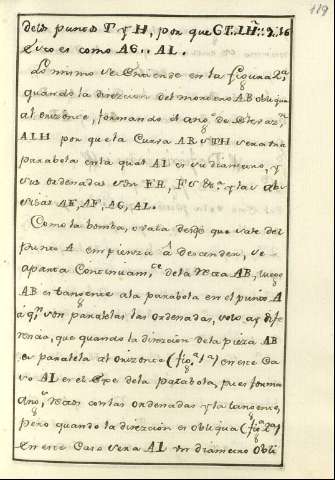 119
delos puntos T y H, por que GT.. IH.. :: 9. 36
Esto es como AG.. AL.
Lo mismo se entiende en la figura 2ª,
quando la direzion del mortero AB obliqua
al orizonte, formando el ang.º de
ALH por que la Curva AR s TH sera una
parabola en la qual AL es su diametro, y
sus ordenadas son ER, FS &c.ª y las abs-
cisas AE, AF, AG, AL.
Como la bomba, o vala desde que sale del
punto A empienza â descender, se
aparta Continuam.te dela recta AB, luego
AB es tangente ala parabola en el punto A
à q.n son paralelas las ordenadas, solo ay dife-
rencia, que quando la direzion dela pieza AB
es paralela al orizonte (fig.ª 1ª) en este Ca-
so AL es el Exe dela parabola, pues forma
ang.º rectos con las ordenadas y la tangente,
pero quando la direzion es obliqua (fig.ª 2ª)
en este Caso sera AL un diametro obli-